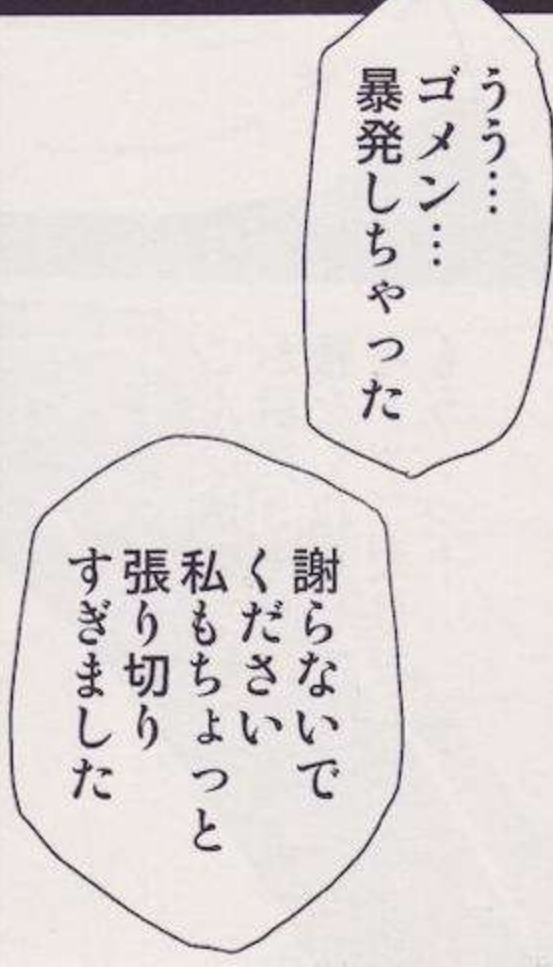 うう…
ゴメン…
暴発しちゃった
謝らないで
ください
私もちょっと
張り切り
すぎました